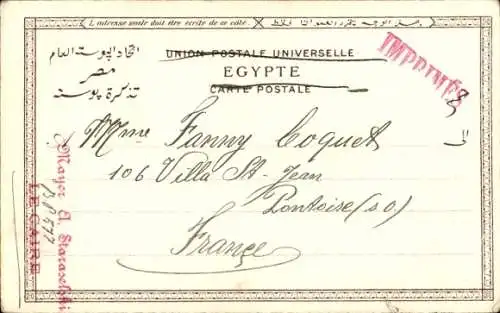 L'adresse seule doit être écrite de ce côté.
اتحاد البوستة العام
مصر
تذكرة بوستة
UNION POSTALE UNIVERSELLE
EGYPTE
CARTE POSTALE
IMPRIMÉS
الى
Mme Fanny Coquet
106 Villa St-Jean
Pontoise (s o)
France
Mayer A.
LE CAIRE